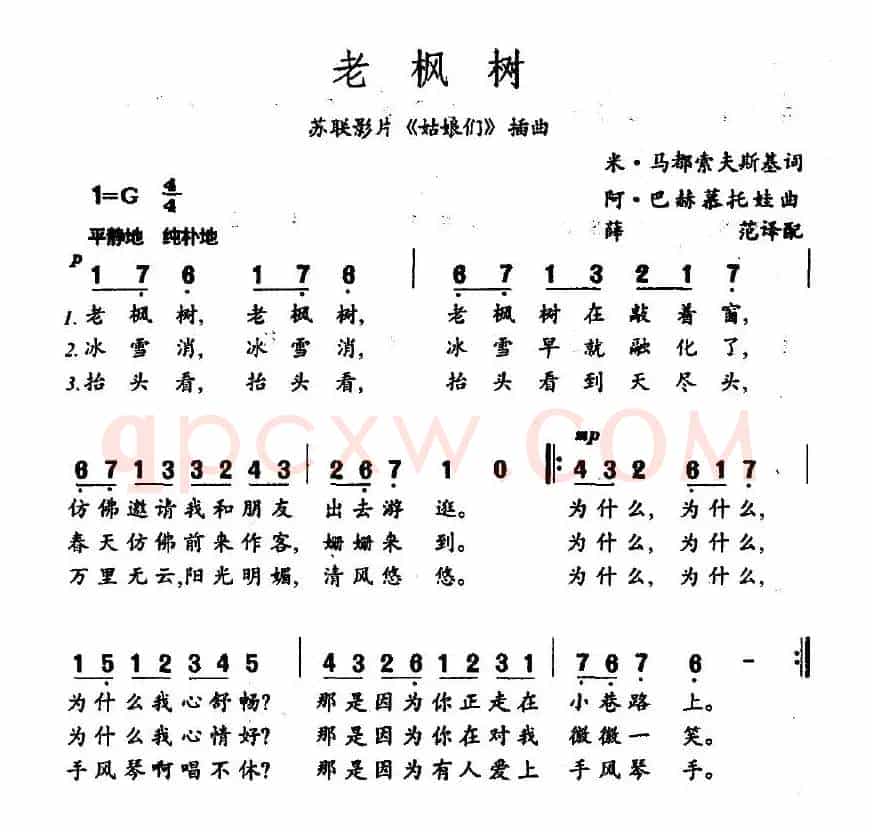 老枫树
苏联影片《姑娘们》插曲
米·马都索夫斯基词
1=G 4/4
阿·巴赫慕托娃曲
平静地 纯朴地
薛 范译配
p
1 7 6 1 7 6 | 6 7 1 3 2 1 7 |
1. 老枫树, 老枫树, 老枫树在敲着窗,
2. 冰雪消, 冰雪消, 冰雪早就融化了,
3. 抬头看, 抬头看, 抬头看到天尽头,
qpcxw.COM
mp
6 7 1 3 3 2 4 3 | 2 6 7 1 0 ‖: 4 3 2 6 1 7 |
仿佛邀请我和朋友 出去游逛。 为什么, 为什么,
春天仿佛前来作客, 姗姗来到。 为什么, 为什么,
万里无云,阳光明媚, 清风悠悠。 为什么, 为什么,
1 5 1 2 3 4 5 | 4 3 2 6 1 2 3 1 | 7 6 7 6 - :‖
为什么我心舒畅? 那是因为你正走在 小巷路上。
为什么我心情好? 那是因为你在对我 微微一笑。
手风琴啊唱不休? 那是因为有人爱上 手风琴手。